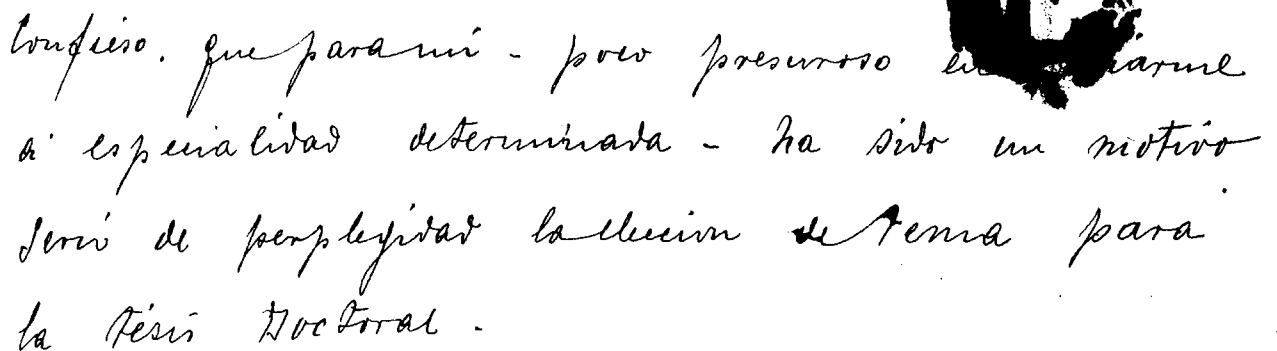 Confieso, que para mi - poco presuroso en
á especialidad determinada - ha sido un motivo
serio de perplegidad la eleccion de tema para
la tésis Doctoral -